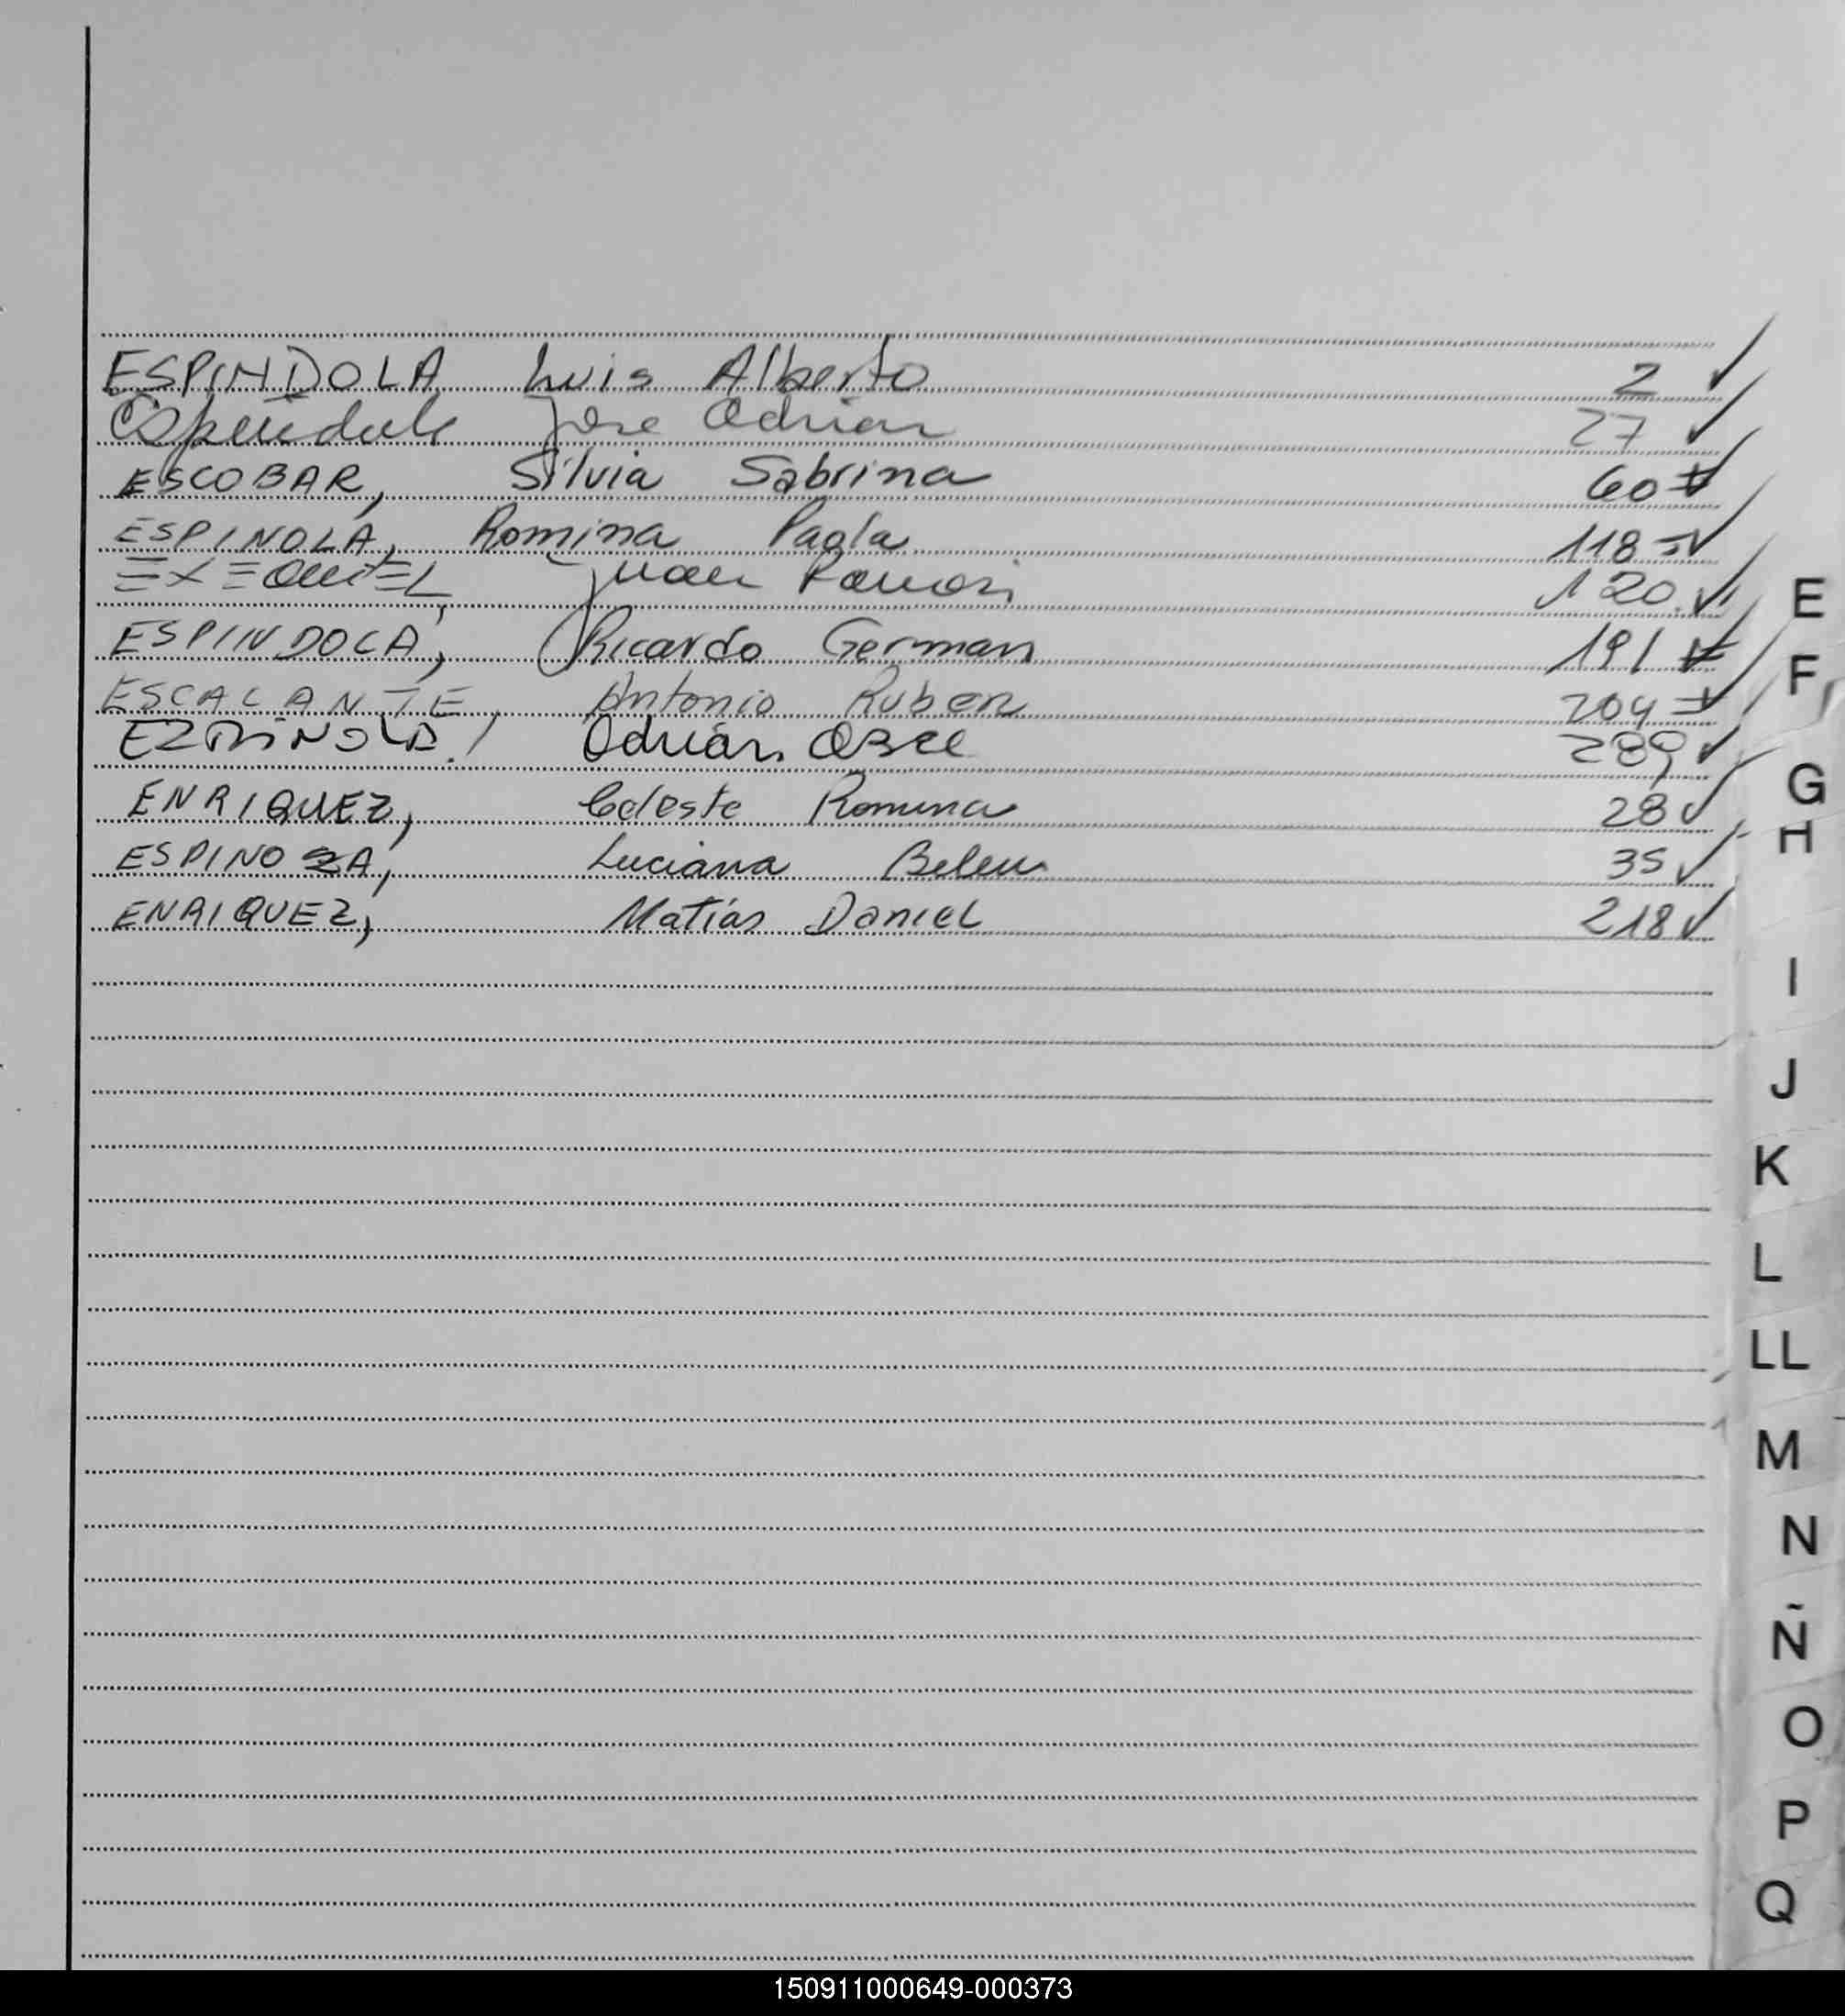 ESPINDOLA Luis Alberto 2 ✓
Espindola Jose Adrian 27 ✓
ESCOBAR, Silvia Sabrina 60 ✓
ESPINOLA, Romina Paola 118 ✓
EXEQUIEL Juan Ramon 120 ✓
ESPINDOLA, Ricardo German 191 ✓
ESCALANTE Antonio Ruben 204 ✓
Adrián 289 ✓
ENRIQUEZ, Celeste Romina 28 ✓
ESPINOZA, Luciana Belen 35 ✓
ENRIQUEZ, Matías Daniel 218 ✓
E
F
G
H
I
J
K
L
LL
M
N
Ñ
O
P
Q
150911000649-000373